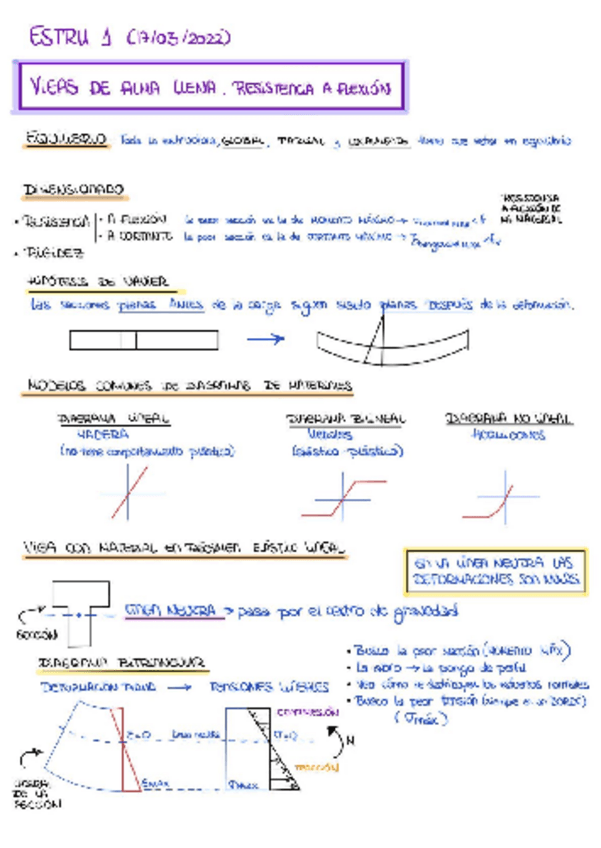 ESTRU 1 (17/03/2022)
VIGAS DE ALMA LLENA. RESISTENCIA A FLEXIÓN
EQUILIBRIO Toda la estructura, GLOBAL, PARCIAL y LOCALMENTE tiene que estar en equilibrio
DIMENSIONADO
RESISTENCIA A FLEXIÓN DE MI MATERIAL
• RESISTENCIA • A FLEXIÓN la peor sección es la de MOMENTO MÁXIMO →
• A CORTANTE la peor sección es la de CORTANTE MÁXIMO →
• RIGIDEZ
HIPÓTESIS DE NAVIER
Las secciones planas ANTES de la carga siguen siendo planas DESPUÉS de la deformación.
MODELOS COMUNES DE DIAGRAMAS DE MATERIALES
DIAGRAMA LINEAL
MADERA
(no tiene comportamiento plástico)
DIAGRAMA BILINEAL
METALES
(elástico-plástico)
DIAGRAMA NO LINEAL
HORMIGONES
VIGA CON MATERIAL EN RÉGIMEN ELÁSTICO LINEAL
EN LA LÍNEA NEUTRA LAS
DEFORMACIONES SON NULAS.
LÍNEA NEUTRA → pasa por el centro de gravedad
SECCIÓN
DIAGRAMA BITRIANGULAR
DEFORMACIÓN PLANA → TENSIONES LINEALES
• Busco la peor sección (MOMENTO MÁX)
• La abro → La pongo de perfil
• Veo cómo se distribuyen los esfuerzos normales
• Busco la peor TENSIÓN (siempre es un BORDE)
(σmáx)
COMPRESIÓN
ε=0
Línea neutra
σ=0
M
TRACCIÓN
εMAX
σMAX
DE LA
SECCIÓN